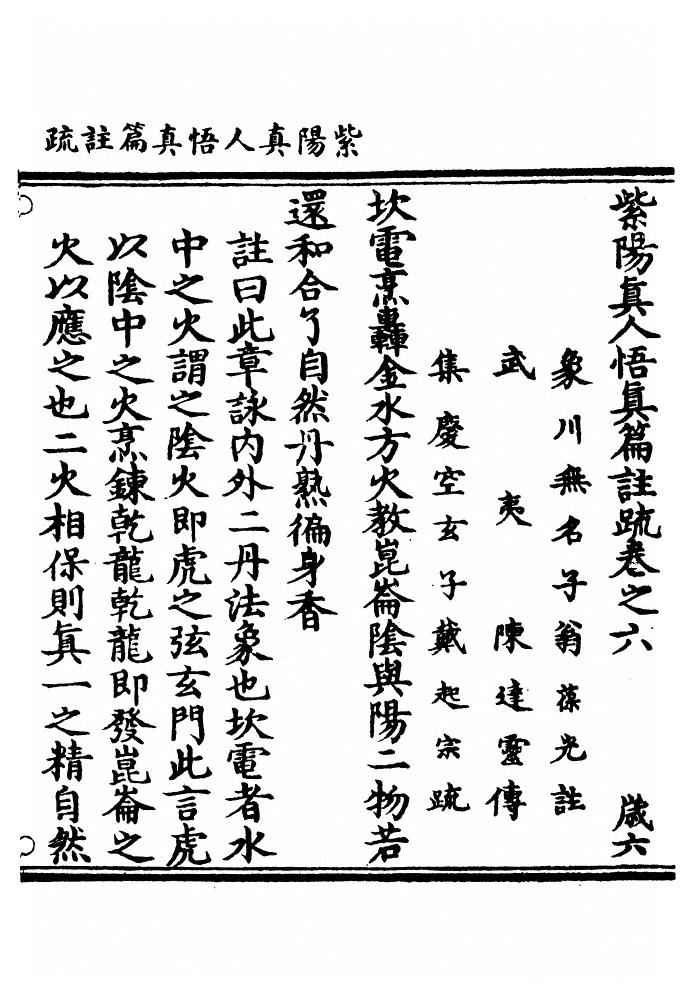 紫陽真人悟真篇註疏
紫陽眞人悟眞篇註疏卷之六 歲六
象川無名子翁葆光註
武夷陳達靈傳
集慶空玄子戴起宗疏
坎電烹轟金水方火教崑崙陰與陽二物若
還和合了自然丹熟徧身香
註曰此章詠內外二丹法象也坎電者水
中之火謂之陰火即虎之弦玄門此言虎
以陰中之火烹鍊乾龍乾龍即發崑崙之
火以應之也二火相保則眞一之精自然